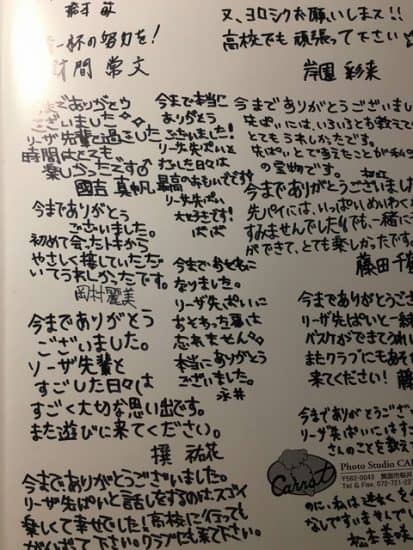 一杯の努力を!
財間 常文
又、ヨロシクお願いしまス!!
高校でも頑張って下さい
岸園 彩菜
までありがとう
ございました
リーザ先輩と過ごした
時間はとても
楽しかったです♂
國吉 真帆
今まで本当に
ありがとう
ございました!
リーザ先ぱいと
した日々は
最高のおもいでです!
リーザ先ぱい
大好きです!
今までありがとうございまし
先ぱいには、いろいろと教えて
とてもうれしかったです。
先ぱいと
の宝物です。
今までありがとうございまし
先パイには、いっぱいめいわく
すみませんでした!でも、一緒に
ができて、とても楽しかったです
藤田 千
今までありがとう
ございました。
初めて会ったトキから
やさしく接していただ
いてうれしかったです。
岡村麗美
今までおせわに
なりました。
リーザ先ぱいに
おそわった事は
忘れません
本当にありがとう
ございました。
永井
今までありがとうござ
リーザ先ぱいと一緒
バスケができてうれし
またクラブにもあそ
来てください!
今までありがとう
ございました。
リーザ先輩と
すごした日々は
すごく大切な思い出です。
また遊びに来てください。
撰 祐花
今までありがとうござい
リーザ先ぱいにはすご
さんのことを教え
Carrot
Photo Studio CA
〒562-0043
Tel & Fax. 072-721-2
のに、私は迷わくを
なしですいませんでし
松本美咲
今までありがとうございました。
リーザ先ぱいと話しをするのはスゴイ
楽しくて幸せでした!高校に行っても
がんばって下さい。クラブにも来て下さい。